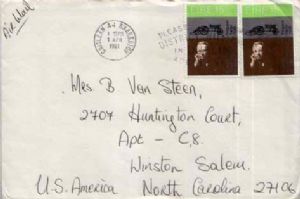 Air Mail
EIRE 15
EIRE 15
1981
Mrs. B Van Steen,
2707 Huntington Court,
Apt - C8.
Winston Salem.
U.S. America North Carolina 27106